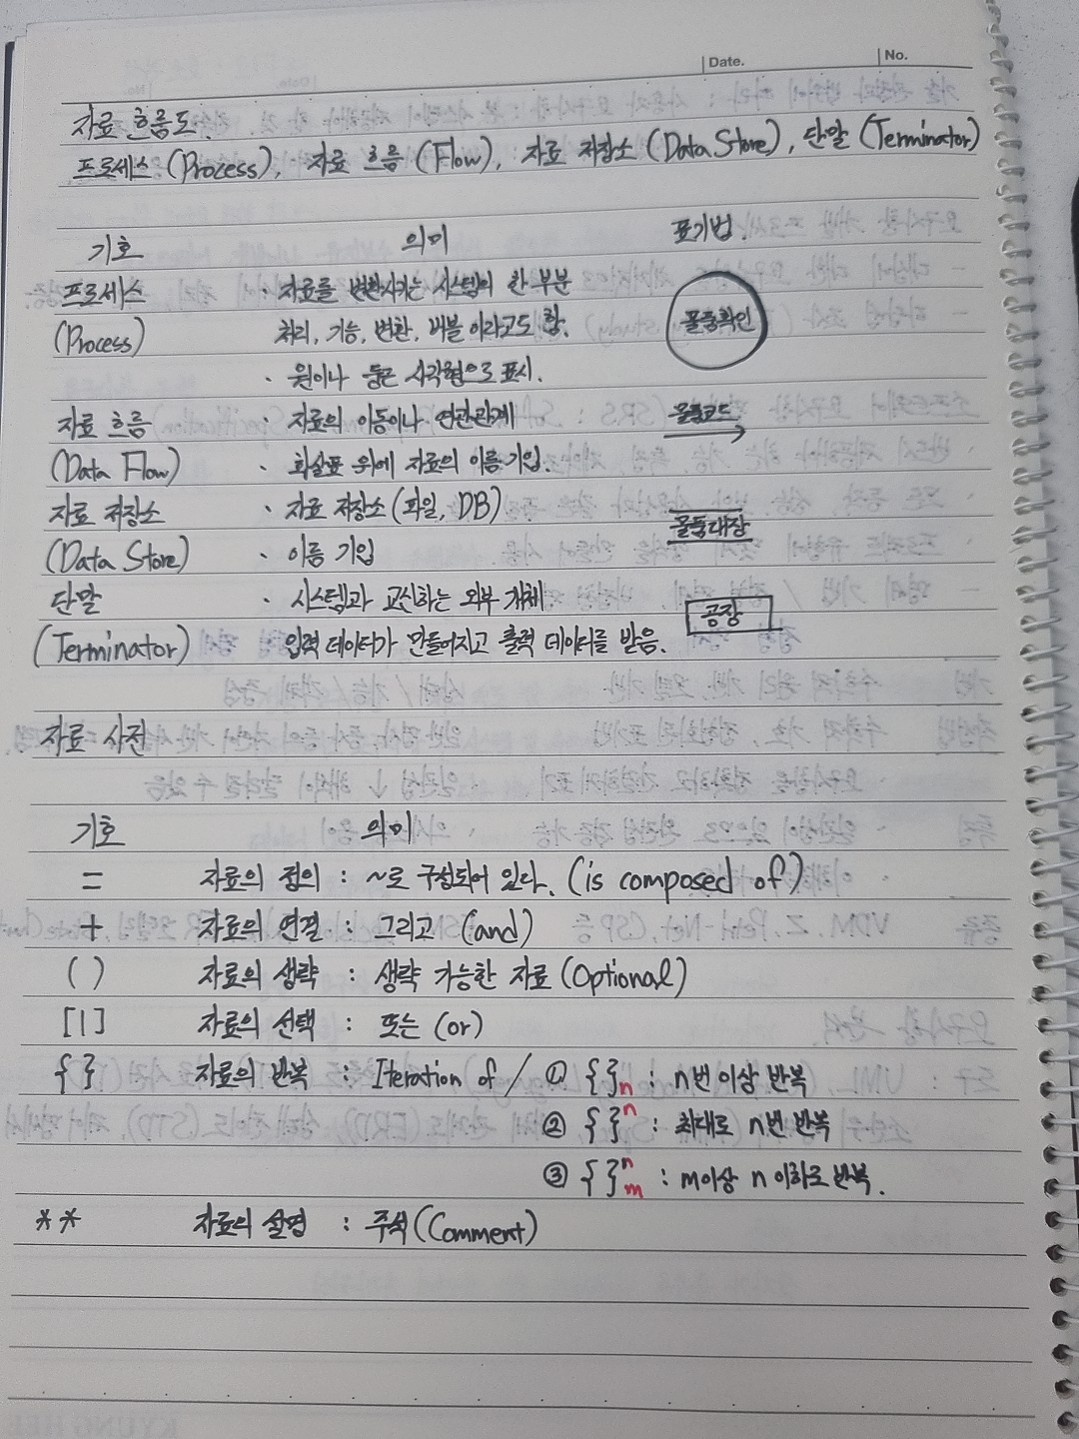 Date.
No.
자료 흐름도
프로세스 (Process), 자료 흐름 (Flow), 자료 저장소 (Data Store), 단말 (Terminator)
기호 의미 표기법.
프로세스 · 자료를 변환시키는 시스템의 한 부분
(Process) 처리, 기능, 변환, 버블 이라고도 함. 물품확인
· 원이나 둥근 사각형으로 표시.
자료 흐름 · 자료의 이동이나 연관관계 물품코드
(Data Flow) · 화살표 위에 자료의 이름 기입.
자료 저장소 · 자료 저장소 (파일, DB)
(Data Store) · 이름 기입 물품대장
단말 · 시스템과 교신하는 외부 개체 공장
(Terminator) 입력 데이터가 만들어지고 출력 데이터를 받음.
자료 사전
기호 의미
= 자료의 정의 : ~로 구성되어 있다. (is composed of)
+ 자료의 연결 : 그리고 (and)
( ) 자료의 생략 : 생략 가능한 자료 (Optional)
[|] 자료의 선택 : 또는 (or)
{ } 자료의 반복 : Iteration of / ① { }n : n번 이상 반복
② { }n : 최대로 n번 반복
③ { }n m : m이상 n이하로 반복.
** 자료의 설명 : 주석 (Comment)